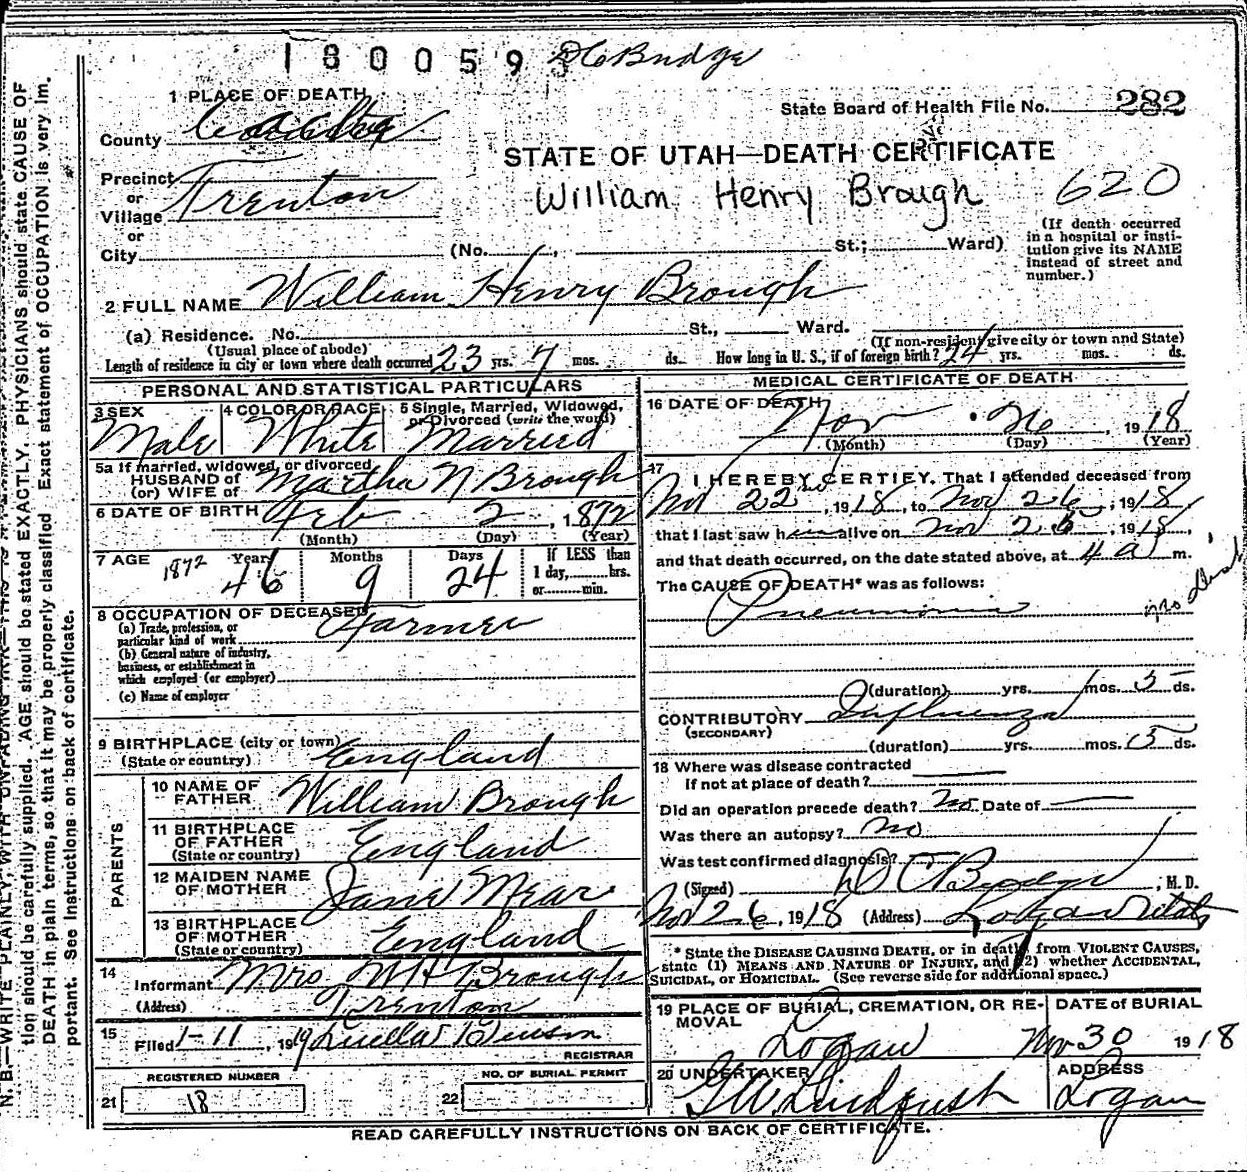 180059 D C Budge
1 PLACE OF DEATH
State Board of Health File No. 282
County Cache
STATE OF UTAH—DEATH CERTIFICATE
Precinct
or
Village Trenton
William Henry Brough 620
or
City (No. St.; Ward)
(If death occurred in a hospital or institution give its NAME instead of street and number.)
2 FULL NAME William Henry Brough
(a) Residence. No. St., Ward.
(Usual place of abode) (If non-resident give city or town and State)
Length of residence in city or town where death occurred 23 yrs. 7 mos. ds. How long in U. S., if of foreign birth? 24 yrs. mos. ds.
PERSONAL AND STATISTICAL PARTICULARS
3 SEX 4 COLOR OR RACE 5 Single, Married, Widowed, or Divorced (write the word)
Male White Married
5a If married, widowed, or divorced
HUSBAND of
(or) WIFE of Martha N Brough
6 DATE OF BIRTH Feb 2, 1872
(Month) (Day) (Year)
7 AGE 1872 Years Months Days If LESS than
46 9 24 1 day, hrs.
or min.
8 OCCUPATION OF DECEASED
(a) Trade, profession, or
particular kind of work Farmer
(b) General nature of industry,
business, or establishment in
which employed (or employer)
(c) Name of employer
9 BIRTHPLACE (city or town)
(State or country) England
PARENTS
10 NAME OF
FATHER William Brough
11 BIRTHPLACE
OF FATHER
(State or country) England
12 MAIDEN NAME
OF MOTHER Jane Mear
13 BIRTHPLACE
OF MOTHER
(State or country) England
14
Informant Mrs. W H Brough
(Address) Trenton
15
Filed 1-11, 1919 Luella Benson
REGISTRAR
REGISTERED NUMBER NO. OF BURIAL PERMIT
21 18 22
MEDICAL CERTIFICATE OF DEATH
16 DATE OF DEATH
Nov 26, 1918
(Month) (Day) (Year)
17 I HEREBY CERTIFY, That I attended deceased from
Nov 22nd, 1918, to Nov 26, 1918,
that I last saw him alive on Nov 25, 1918,
and that death occurred, on the date stated above, at 4 a m.
The CAUSE OF DEATH* was as follows:
Pneumonia
(duration) yrs. mos. 5 ds.
CONTRIBUTORY Influenza
(SECONDARY)
(duration) yrs. mos. 15 ds.
18 Where was disease contracted
If not at place of death?
Did an operation precede death? no Date of
Was there an autopsy? no
Was test confirmed diagnosis?
(Signed) D C Budge, M. D.
Nov 26, 1918 (Address) Logan Utah
* State the DISEASE CAUSING DEATH, or in deaths from VIOLENT CAUSES,
state (1) MEANS AND NATURE OF INJURY, and (2) whether ACCIDENTAL,
SUICIDAL, or HOMICIDAL. (See reverse side for additional space.)
19 PLACE OF BURIAL, CREMATION, OR RE- DATE of BURIAL
MOVAL
Logan Nov 30 1918
20 UNDERTAKER ADDRESS
Logan
READ CAREFULLY INSTRUCTIONS ON BACK OF CERTIFICATE.
tion should be carefully supplied. AGE should be stated EXACTLY. PHYSICIANS should state CAUSE OF
DEATH in plain terms, so that it may be properly classified. Exact statement of OCCUPATION is very im-
portant. See Instructions on back of certificate.